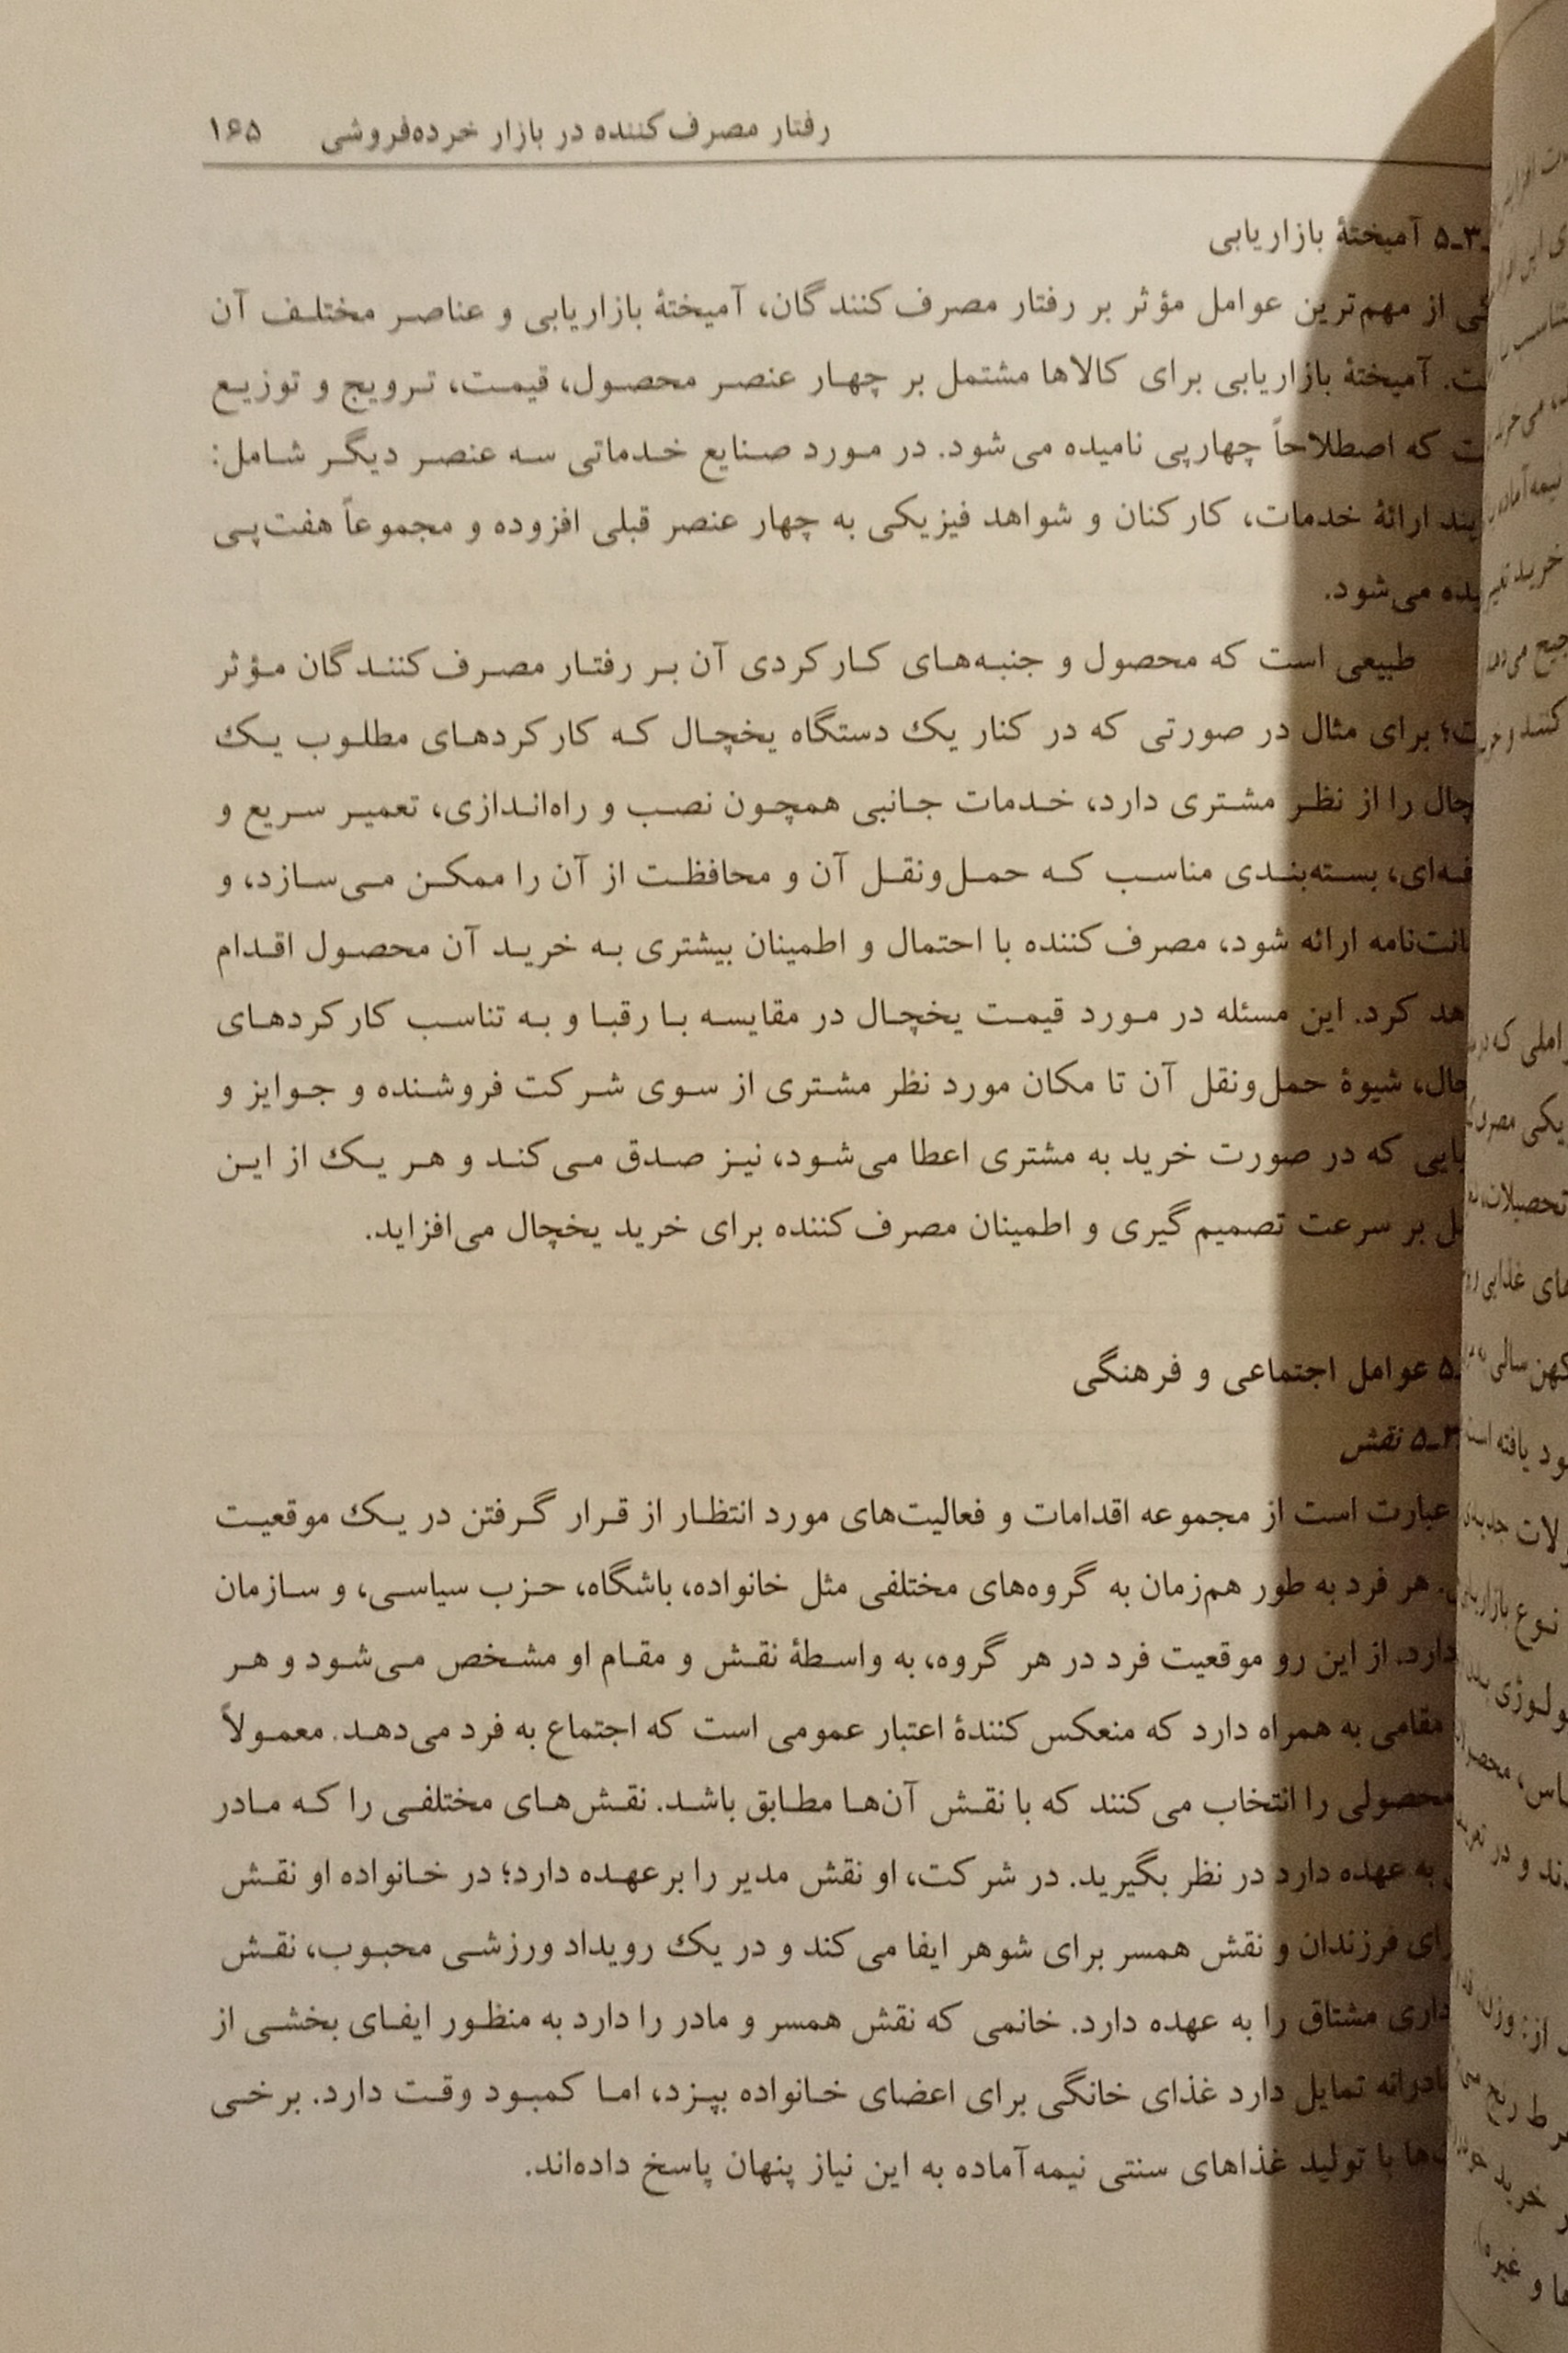 رفتار مصرف‌کننده در بازار خرده‌فروشی ۱۶۵
آمیختهٔ بازاریابی
از مهم‌ترین عوامل مؤثر بر رفتار مصرف‌کنندگان، آمیختهٔ بازاریابی و عناصر مختلف آن
آمیختهٔ بازاریابی برای کالاها مشتمل بر چهار عنصر محصول، قیمت، ترویج و توزیع
که اصطلاحاً چهارپی نامیده می‌شود. در مورد صنایع خدماتی سه عنصر دیگر شامل:
ارائهٔ خدمات، کارکنان و شواهد فیزیکی به چهار عنصر قبلی افزوده و مجموعاً هفت‌پی
می‌شود.
طبیعی است که محصول و جنبه‌های کارکردی آن بر رفتار مصرف‌کنندگان مؤثر
برای مثال در صورتی که در کنار یک دستگاه یخچال که کارکردهای مطلوب یک
را از نظر مشتری دارد، خدمات جانبی همچون نصب و راه‌اندازی، تعمیر سریع و
بسته‌بندی مناسب که حمل‌ونقل آن و محافظت از آن را ممکن می‌سازد، و
ارائه شود، مصرف‌کننده با احتمال و اطمینان بیشتری به خرید آن محصول اقدام
کرد. این مسئله در مورد قیمت یخچال در مقایسه با رقبا و به تناسب کارکردهای
شیوهٔ حمل‌ونقل آن تا مکان مورد نظر مشتری از سوی شرکت فروشنده و جوایز و
که در صورت خرید به مشتری اعطا می‌شود، نیز صدق می‌کند و هر یک از این
بر سرعت تصمیم‌گیری و اطمینان مصرف‌کننده برای خرید یخچال می‌افزاید.
عوامل اجتماعی و فرهنگی
نقش
عبارت است از مجموعه اقدامات و فعالیت‌های مورد انتظار از قرار گرفتن در یک موقعیت
هر فرد به طور هم‌زمان به گروه‌های مختلفی مثل خانواده، باشگاه، حزب سیاسی، و سازمان
دارد. از این رو موقعیت فرد در هر گروه، به واسطهٔ نقش و مقام او مشخص می‌شود و هر
مقامی به همراه دارد که منعکس‌کنندهٔ اعتبار عمومی است که اجتماع به فرد می‌دهد. معمولاً
محصولی را انتخاب می‌کنند که با نقش آن‌ها مطابق باشد. نقش‌های مختلفی را که مادر
به عهده دارد در نظر بگیرید. در شرکت، او نقش مدیر را برعهده دارد؛ در خانواده او نقش
فرزندان و نقش همسر برای شوهر ایفا می‌کند و در یک رویداد ورزشی محبوب، نقش
مشتاق را به عهده دارد. خانمی که نقش همسر و مادر را دارد به منظور ایفای بخشی از
تمایل دارد غذای خانگی برای اعضای خانواده بپزد، اما کمبود وقت دارد. برخی
با تولید غذاهای سنتی نیمه‌آماده به این نیاز پنهان پاسخ داده‌اند.